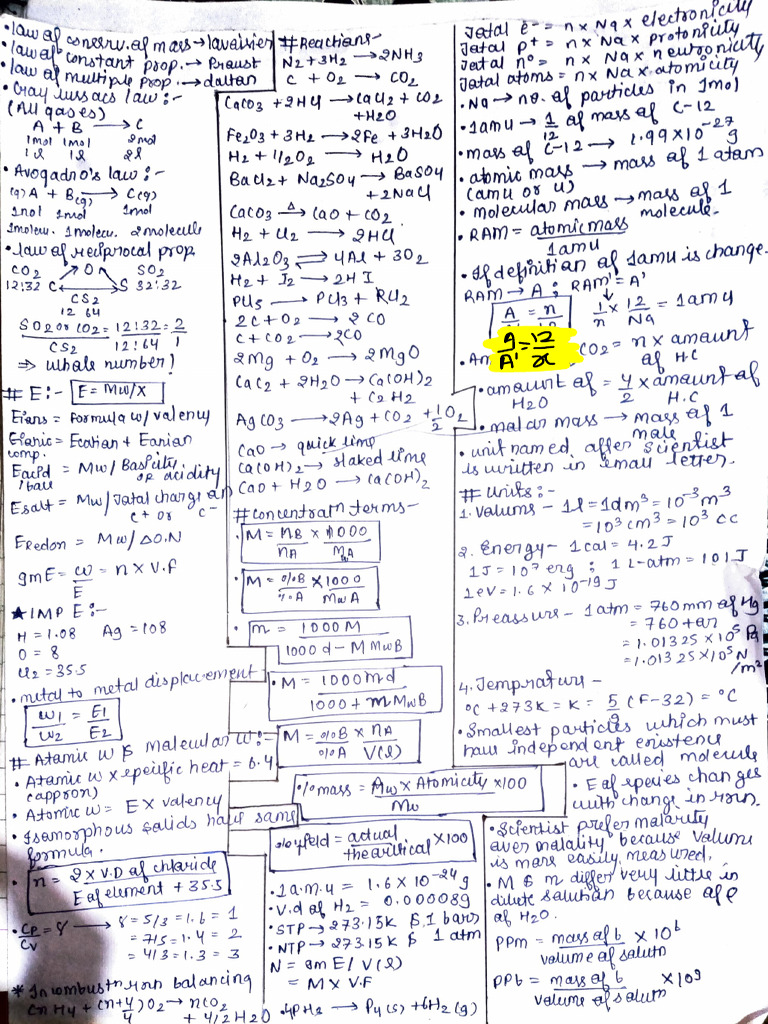 •law of conserv. of mass → lavoisier
•law of constant prop. → Proust
•law of multiple prop. → dalton
•Gray lussacs law:-
(All gases)
A + B → C
1mol 1mol 2mol
1l 1l 2l
•Avogadno's law:-
(g)A + B(g) → C(g)
1nol 1mol 1mol
1molecu. 1molecu. 2molecule
•law of reciprocal prop
CO2 O SO2
12:32 C S 32:32
CS2
12 64
SO2 or CO2 = 12:32 = 2
CS2 12:64 1
⇒ whole number!
# E:- E = Mw/x
Eions = formula w/valency
Eionic comp. = Ecation + Eanion
Eacid/base = Mw/Basicity or acidity
Esalt = Mw/Total charge on c+ or c-
Eredox = Mw/ΔO.N
gmE = w/E = n x V.f
★IMP E:-
H = 1.08 Ag = 108
O = 8
Cl2 = 35.5
•metal to metal displacement-
w1/w2 = E1/E2
# Atomic w & Molecular w:-
•Atomic w x speific heat = 6.4
(appron)
•Atomic w = E x valency
•Isomorphous solids have same
formula.
• n = 2 x V.D of chloride
E of element + 35.5
•Cp/Cv = γ → γ = 5/3 = 1.6 = 1
= 7/5 = 1.4 = 2
= 4/3 = 1.3 = 3
* In combustn roxn balancing
CnHy + (n+y/4)O2 → nCO2
+ y/2 H2O
# Reactions-
N2 + 3H2 → 2NH3
C + O2 → CO2
CaCO3 + 2HCl → CaCl2 + CO2
+ H2O
Fe2O3 + 3H2 → 2Fe + 3H2O
H2 + 1/2O2 → H2O
BaCl2 + Na2SO4 → BaSO4
+ 2NaCl
CaCO3 Δ→ CaO + CO2
H2 + Cl2 → 2HCl
2Al2O3 ⇌ 4Al + 3O2
H2 + I2 → 2HI
PCl5 → PCl3 + Cl2
2C + O2 → 2CO
C + CO2 → 2CO
2Mg + O2 → 2MgO
CaC2 + 2H2O → Ca(OH)2
+ C2H2
AgCO3 → 2Ag + CO2 + 1/2 O2
CaO → quick lime
Ca(OH)2 → slaked lime
CaO + H2O → Ca(OH)2
# Concentratn terms-
• M = nB/nA x 1000/MwA
• M = %B/%A x 1000/MwA
• m = 1000M
1000d - M MwB
• M = 1000md
1000 + m MwB
M = %B/%A x nA/V(l)
%mass = Aw x Atomicity x 100
Mw
%yield = actual/theoritical x 100
•1a.m.u = 1.6 x 10-24 g
•V.d of H2 = 0.000089
•STP → 273.15k & 1 bars
•NTP → 273.15k & 1 atm
N = gmE/V(l)
= M x V.f
•4PH3 → P4(s) + 6H2(g)
Total e- = n x Na x electronicity
Total p+ = n x Na x protonicity
Total n° = n x Na x neutronicity
Total atoms = n x Na x atomicity
•Na → no. of particles in 1mol
•1amu → 1/12 of mass of C-12
•mass of C-12 → 1.99 x 10-27 g
•atomic mass → mass of 1 atom
(amu or u)
•molecular mass → mass of 1
molecule.
•RAM = atomic mass
1amu
•If definition of 1amu is change.
RAM → A ; RAM' = A'
A = n
1/n x 12/Na = 1amu
g/A' = 12/x
CO2 = n x amount
of HC
•amount of = y/2 x amount of
H2O H.C
•molar mass → mass of 1
mole
•unit named after Scientist
is written in small letter.
# Units:-
1. Volums - 1l = 1dm3 = 10-3 m3
= 103 cm3 = 103 cc
2. Energy - 1 cal = 4.2 J
1J = 107 erg ; 1 L-atm = 101 J
1eV = 1.6 x 10-19 J
3. Preassure - 1atm = 760mm of Hg
= 760 tor
= 1.01325 x 105 Pa
= 1.01325 x 105 N/m2
4. Temprature -
°C + 273k = K = 5/9 (F-32) = °C
•Smallest particles which must
have independent existence
are called molecule
• E of species changes
with change in roxn.
•Scientist prefer molarity
over molality because volume
is more easily measured.
•M & m differ very little in
dilute solution because of ρ
of H2O.
PPm = mass of b x 106
volume of solutn
PPb = mass of b x 109
volume of solutn